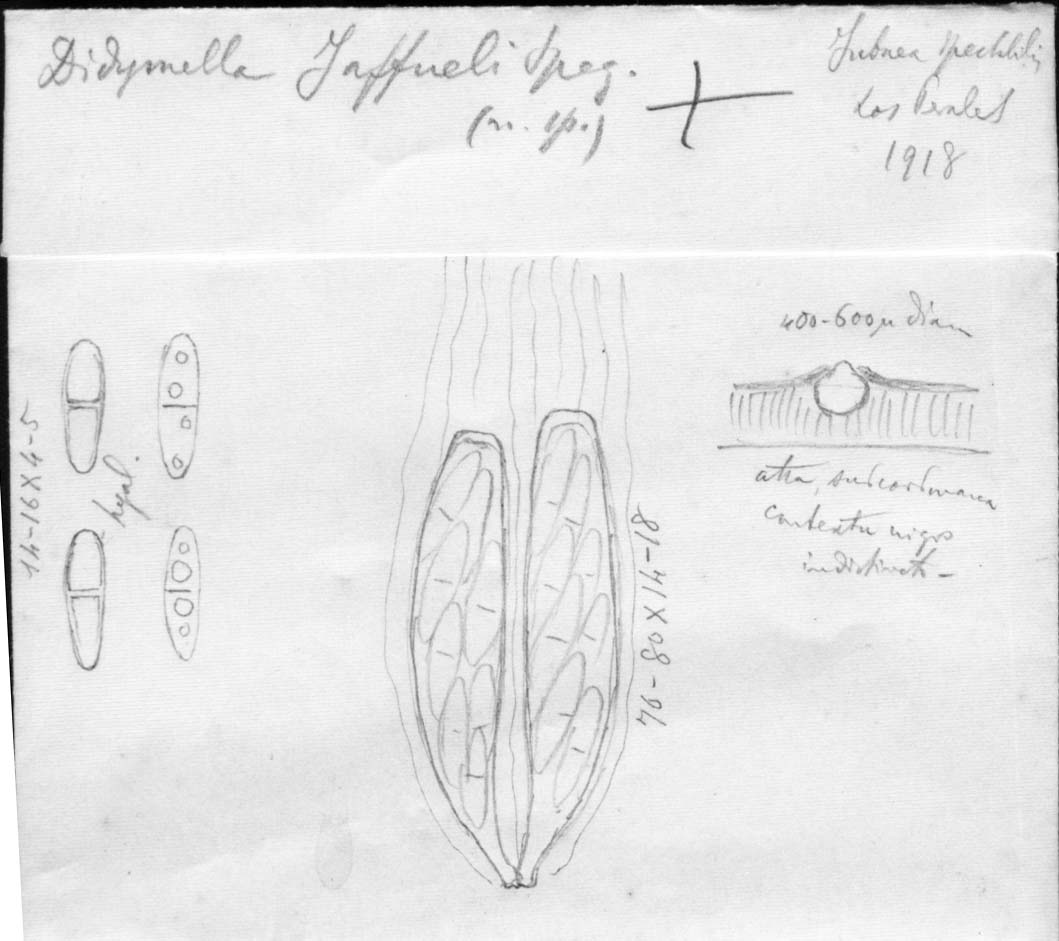 Didymella Jaffueli Speg.
(n. sp.)
Jubaea spectabilis
Los Perales
1918
400-600µ diam
atra, subcoriacea
contextu nigro
indistincto -
14-16 X 4-5
hyal.
76-80 X 14-18